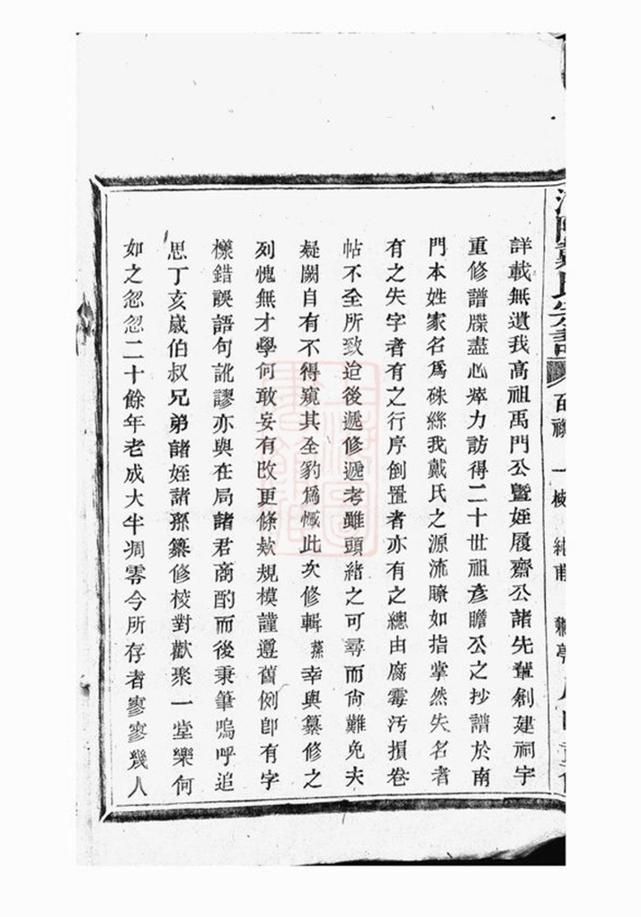 氏宗譜
詳載無遺我高祖禹門公暨姪履齋公諸先輩剏建祠宇
重修譜牒盡心瘁力訪得二十世祖彥瞻公之抄譜於南
門本姓家名爲硃絲我戴氏之源流瞭如指掌然失名者
有之失字者有之行序倒置者亦有之總由腐霉汚損卷
帖不全所致迨後遞修遞考雖頭緒之可尋而尙難免夫
疑闕自有不得窺其全豹爲慨此次修輯 幸與纂修之
列愧無才學何敢妄有改更條欵規模謹遵舊例卽有字
樣錯誤語句訛謬亦與在局諸君商酌而後秉筆嗚呼追
思丁亥歲伯叔兄弟諸姪諸孫纂修校對歡聚一堂樂何
如之忽忽二十餘年老成大半凋零今所存者寥寥幾人